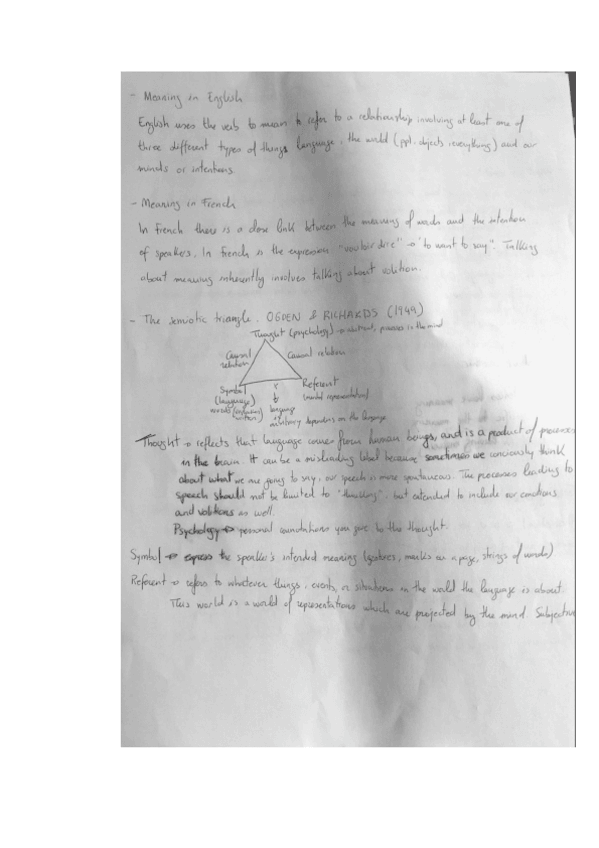 - Meaning in English
English uses the verb to mean to refer to a relationship involving at least one of
three different types of things language, the world (ppl, objects, everything) and our
minds or intentions.
- Meaning in French
In French there is a close link between the meaning of words and the intention
of speakers. In French is the expression "vouloir dire" → "to want to say". Talking
about meaning inherently involves talking about volition.
- The semiotic triangle. OGDEN & RICHARDS (1949)
Thought (psychology) → abstract, processes in the mind
Causal relation
Causal relation
Symbol (language)
words (written)
Referent
(mental representation)
language
arbitrary depending on the language
Thought → reflects that language comes from human beings, and is a product of processes
in the brain. It can be a misleading label because sometimes we conciously think
about what we are going to say, our speech is more spontaneous. The processes leading to
speech should not be limited to "thinking", but extended to include our emotions
and volitions as well.
Psychology → personal connotations you give to the thought.
Symbol → express the speaker's intended meaning (gestures, marks on a page, strings of words)
Referent → refers to whatever things, events, or situations in the world the language is about.
This world is a world of representations which are projected by the mind. Subjective